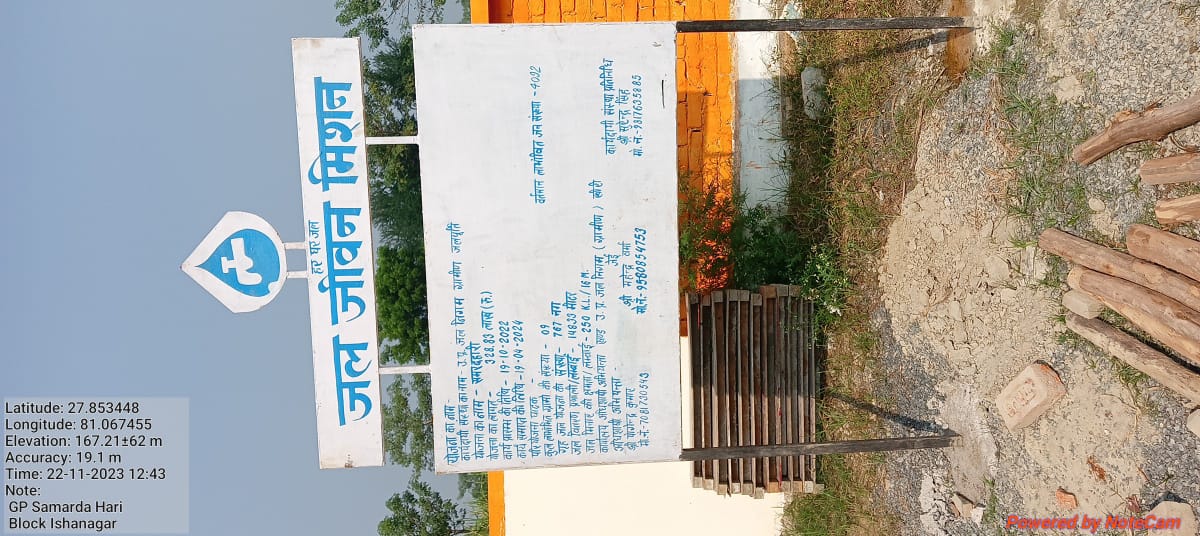 हर घर जल
जल जीवन मिशन
योजना का नाम -
कार्यदायी संस्था का नाम - उ.प्र. जल निगम ग्रामीण जलपूर्ति
योजना का नाम - समरदाहरी
योजना का लागत - 328.83 लाख (रु.)
कार्य प्रारम्भ की तिथि - 19-10-2022
कार्य समाप्त की तिथि - 19-04-2024
परियोजना घटक -
कुल लाभान्वित ग्रामों की संख्या - 09
वर्तमान लाभांवित जन संख्या - 4092
गृह जल संयोजन की संख्या - 767 नग
जल वितरण प्रणाली/लम्बाई - 14833 मीटर
जल मिनार की क्षमता/लम्बाई - 250 K.L./16 M.
कार्यालय अधिशासी अभियन्ता खण्ड उ.प्र. जल निगम (ग्रामीण) खीरी
अधिशासी अभियन्ता जेई कार्यदायी संस्था प्रतिनिधि
श्री योगेन्द्र कुमार श्री महेन्द्र वर्मा श्री सुरेन्द्र सिंह
मो.नं.-7081730543 मो.नं.-9580854753 मो.नं.-9817635885
Latitude: 27.853448
Longitude: 81.067455
Elevation: 167.21±62 m
Accuracy: 19.1 m
Time: 22-11-2023 12:43
Note:
GP Samarda Hari
Block Ishanagar
Powered by NoteCam